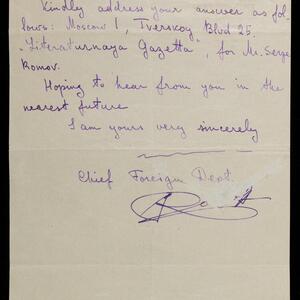 Kindly address your answer as fol
lows: Moscow 1, Tverskoy Blvd 25.
"Literaturnaya Gazetta", for Mr. Serge
Romov.
Hoping to hear from you in the
nearest future
I am yours very sincerely
Chief Foreign Dept.